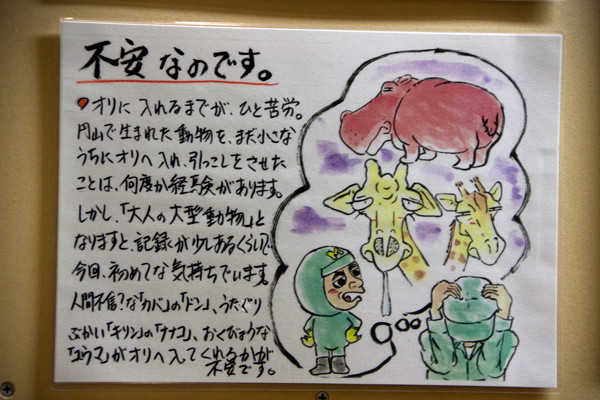 不安なのです。
オリに入れるまでが、ひと苦労。
円山で生まれた動物を、まだ小さな
うちにオリへ入れ、引っこしをさせた
ことは、何度か経験があります。
しかし、「大人の大型動物」と
なりますと、記録が少しあるくらいで
今回、初めてな気持ちでいます。
人間不信?な「カバ」の「ドン」、うたぐり
ぶかい「キリン」の「ナナコ」、おくびょうな
「ユウマ」がオリへ入ってくれるかが
不安です。